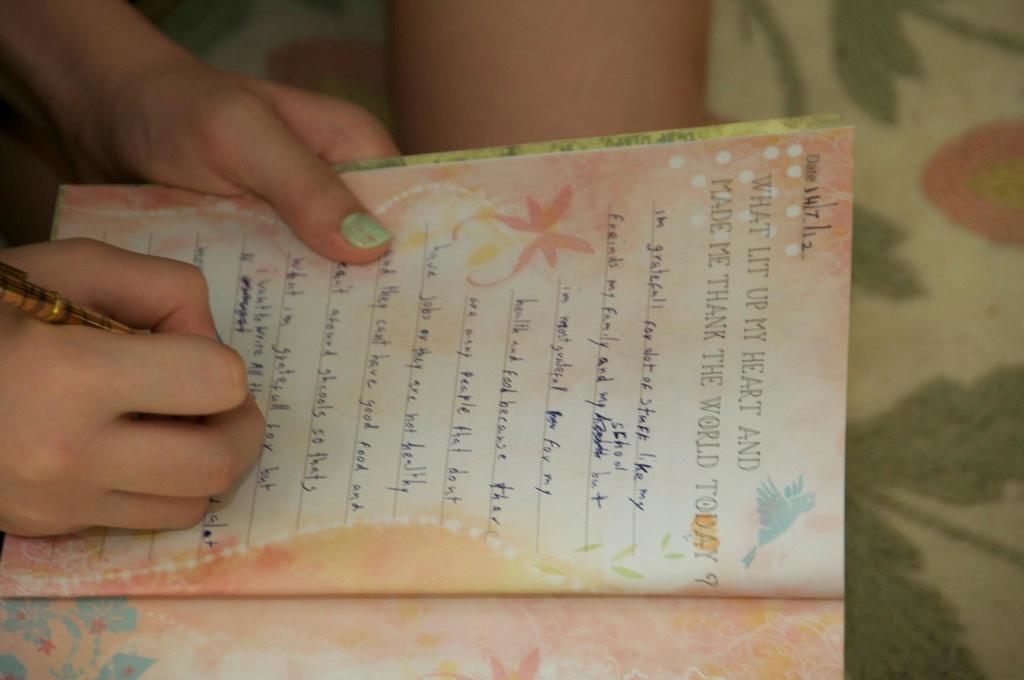 Date 14/7/12
WHAT LIT UP MY HEART AND
MADE ME THANK THE WORLD TODAY ?
im gratefull for alot of stuff like my
freinds my family and my school but
im most grateful for my
health and food because thare
are many people that dont
have jobs or they are not healthy
and they cant have good food and
can't afourd shcools so thats
what im gratefull for but
i want to write All th
alot